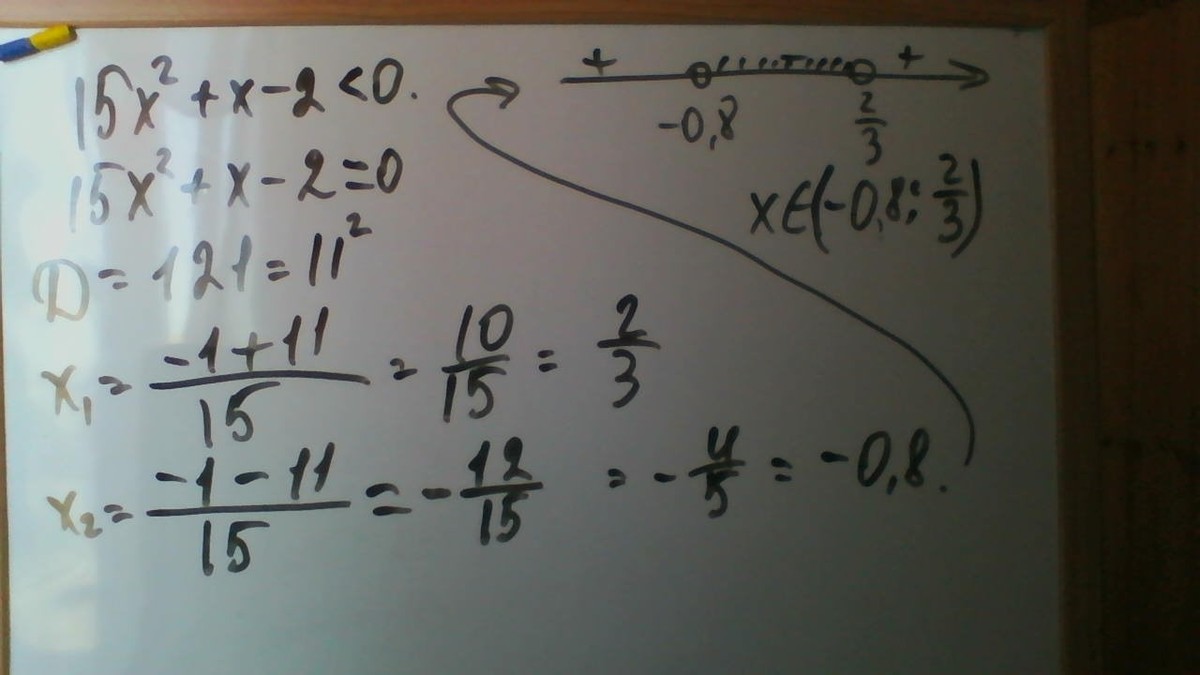 15x² + x - 2 < 0.
15x² + x - 2 = 0
D = 121 = 11²
x₁ = (-1 + 11)/15 = 10/15 = 2/3
x₂ = (-1 - 11)/15 = - 12/15 = - 4/5 = -0,8.
+ - +
-0,8 2/3
x∈(-0,8; 2/3)